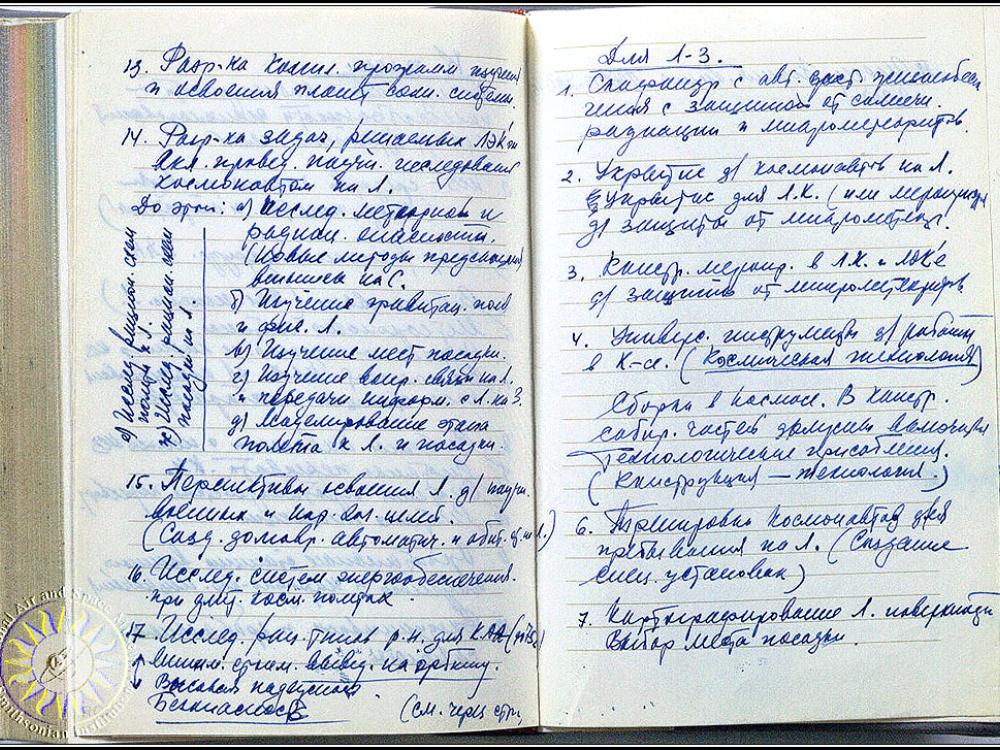 13. Разр-ка компл. программ изучения
и освоения планет солн. системы.
14. Разр-ка задач, решаемых ЛЭК'ом
для провед. научн. исследований
космонавтом на Л.
До этой: а) Исслед. метеорной и
радиац. опасности.
(Новые методы предсказания
вспышек на С.
б) Изучение гравитац. поля
и физ. Л.
в) Изучение мест посадки.
г) Изучение вопр. связи на Л.
и передачи информ. с Л. на З.
д) Моделирование этапа
полета к Л. и посадки.
е) Исслед. рацион. схем
полета к Л.
ж) Исслед. рацион. схем
посадки на Л.
15. Перспективы освоения Л. д/ научн.
военных и нар. хоз. целей.
(Созд. долговр. автоматич. и обит. на Л.)
16. Исслед. систем энергообеспечения.
при длит. косм. полетах.
17. Исслед. рац. типов р.н. для КА
миним. стоим. вывед. на орбиту.
Высокая надежность
Безопасность
(см. через стр.,
Для Л-3.
1. Скафандр с авт. сист. жизнеобеспе
чения с защитой от солнечн.
радиации и микрометеоритов.
2. Укрытие д/ космонавтов на Л.
Укрытие для Л.К. (или мероприятия
д/ защиты от микрометеор.
3. Констр. меропр. в Л.К. и ЛЭК'е
д/ защиты от микрометеоридов.
4. Универс. инструменты д/ работы
в К-се. (Космическая технология)
Сборка в космосе. В констр.
собир. частей должны
технологические приспособления.
(Конструкция — технология.)
6. Тренировки космонавтов для
пребывания на Л. (Создание
спец. установок)
7. Картографирование Л. поверхности
Выбор места посадки.
Smithsonian